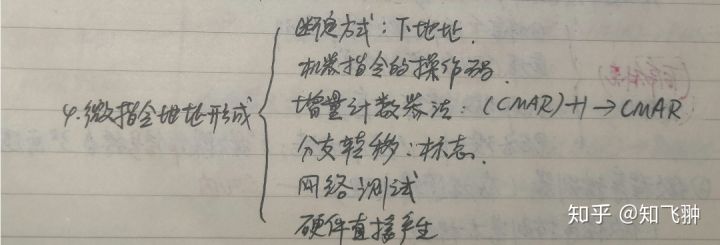 断定方式：下地址.
机器指令的操作码.
4.微指令地址形成
增量计数器法：(CMAR)+1→CMAR
分支转移：标志.
网络测试
硬件直接产生
知乎 @知飞翀